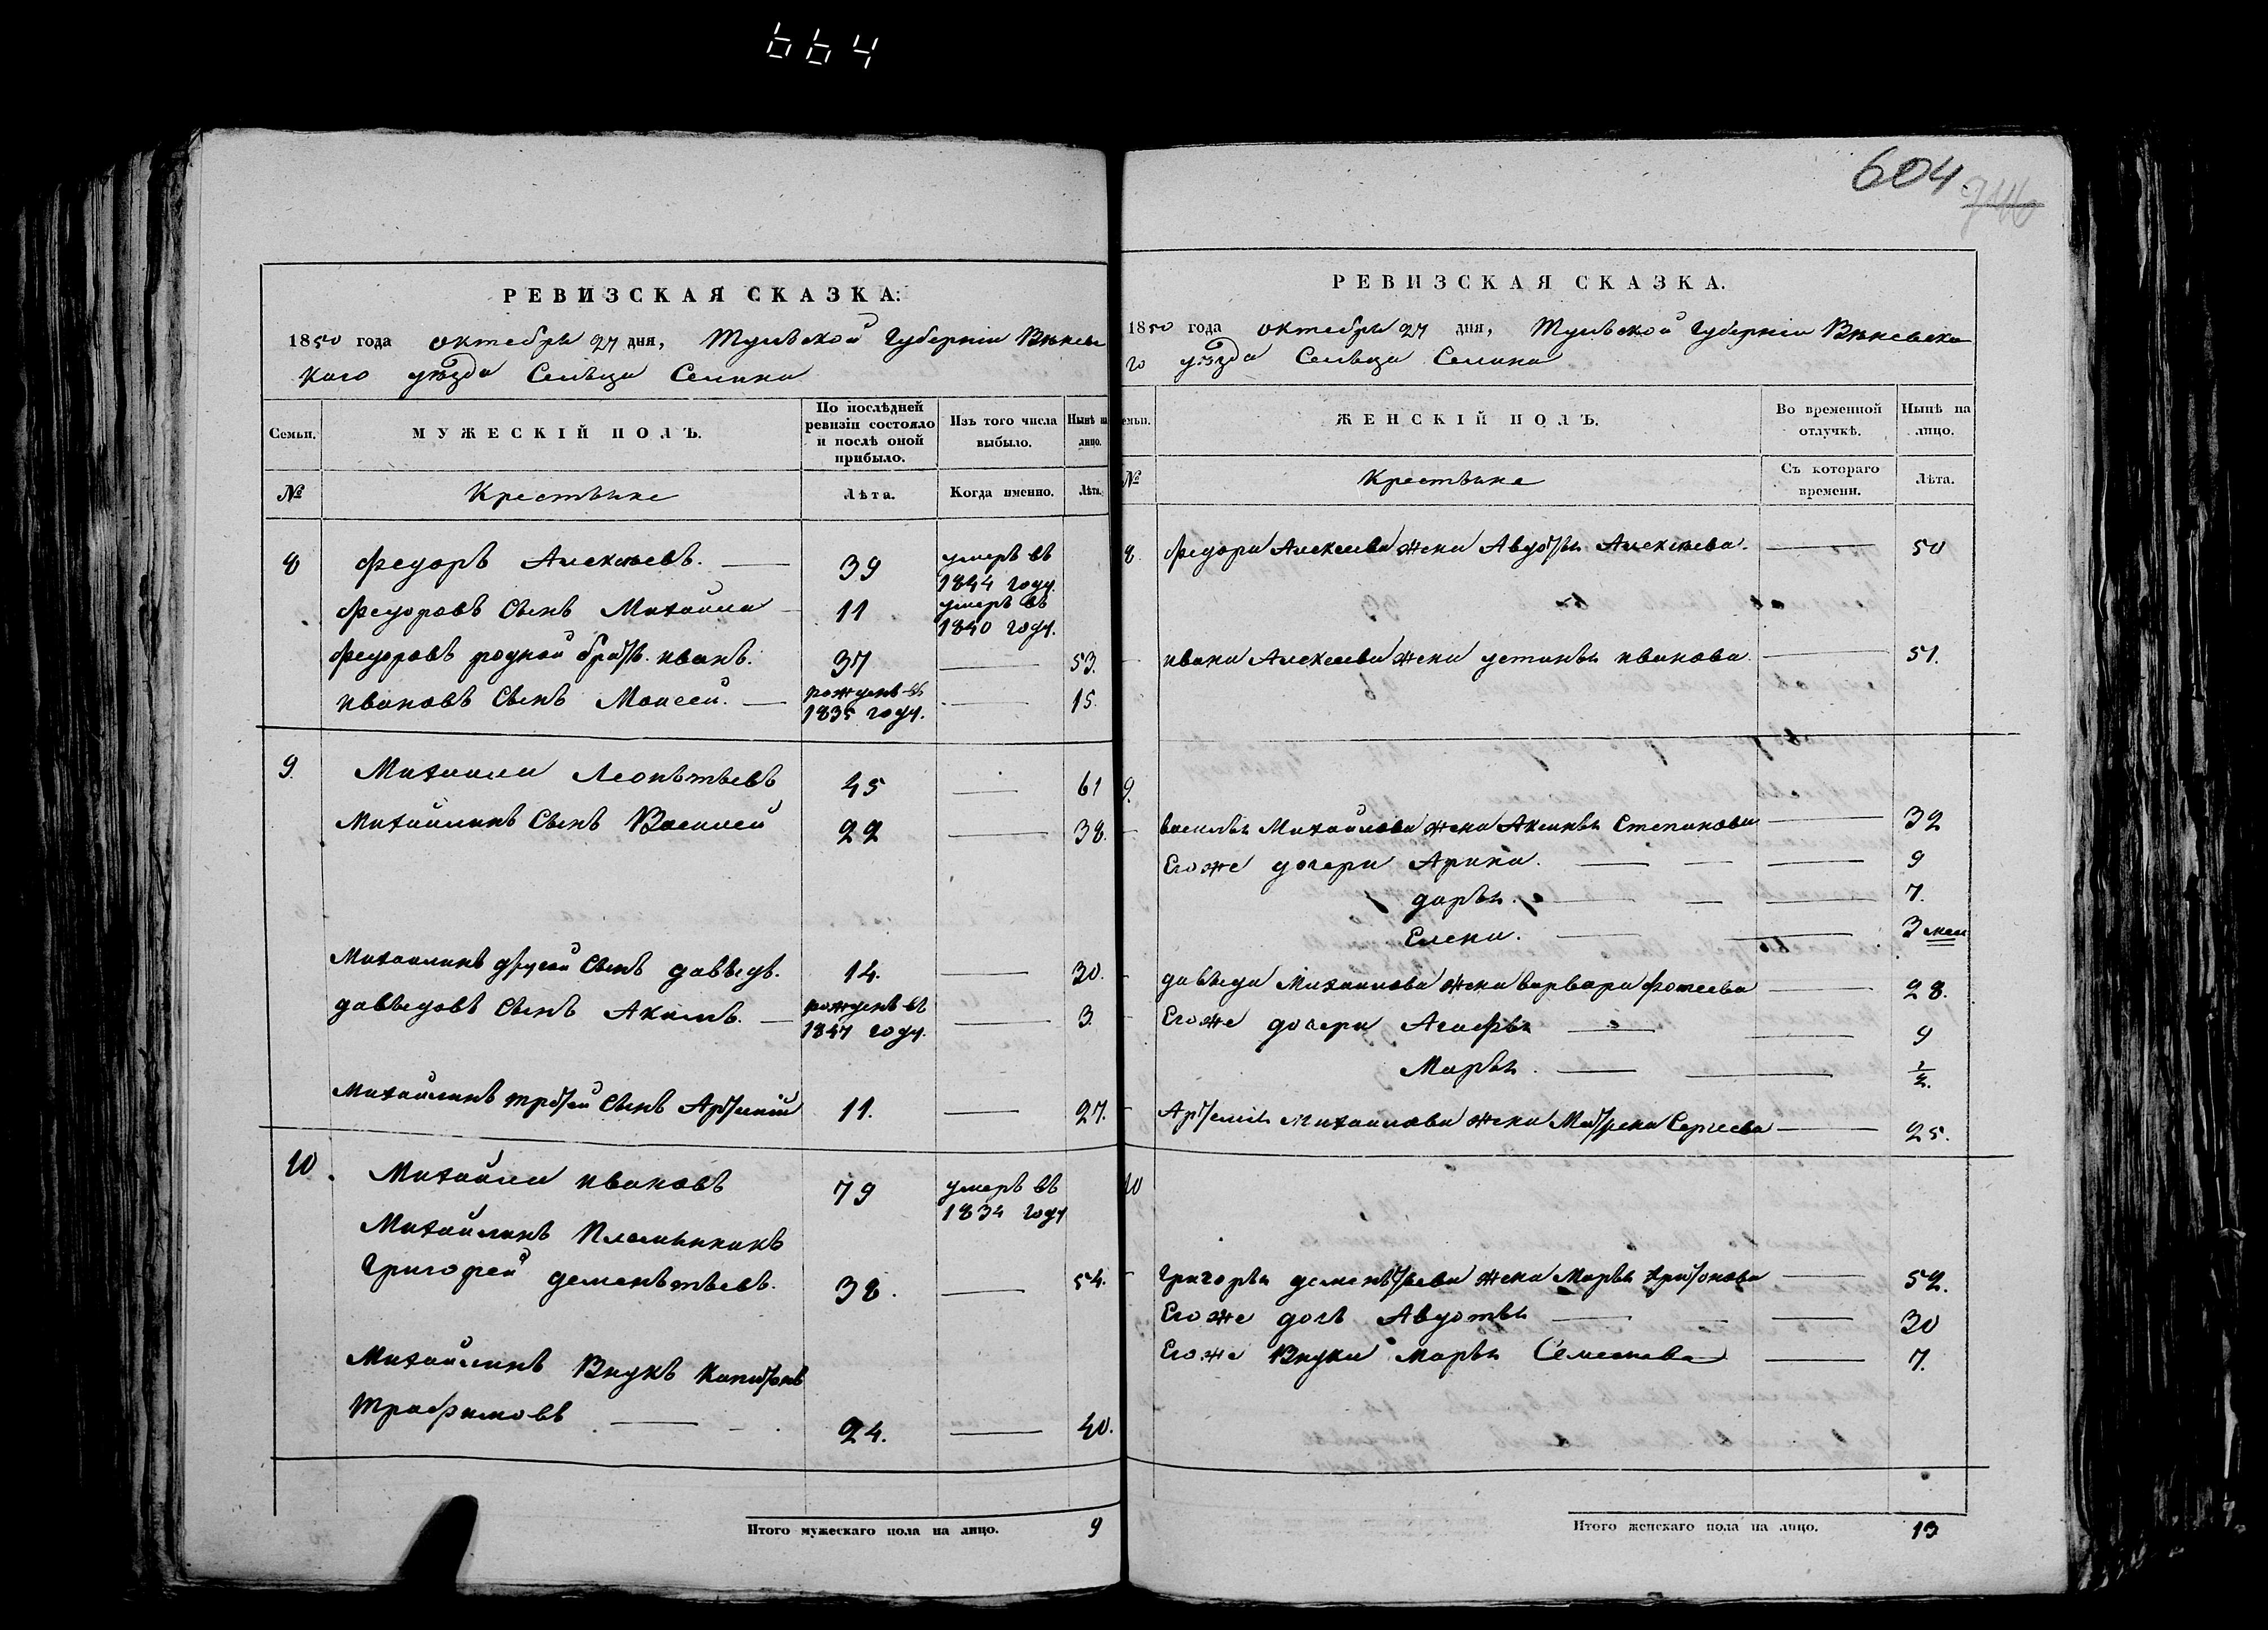 664
604
746
РЕВИЗСКАЯ СКАЗКА:
1850 года октебры 27 дня, Тульской Губерніи Вѣневс
каго уѣзда Сельца Селина
Семьи.
МУЖЕСКІЙ ПОЛЪ.
По послѣдней ревизіи состояло и послѣ оной прибыло.
Изъ того числа выбыло.
Нынѣ на лицо.
№
Крестьяне
Лѣта.
Когда именно.
Лѣта.
8 Федоръ Алексѣевъ. 39 умеръ въ 1844 году.
Федоровъ Сынъ Михайла 11 умеръ въ 1840 году.
Федоровъ родной братъ иванъ. 37 53.
ивановъ Сынъ Моисей. рожденъ въ 1835 году. 15.
9. Михаила Леонътьевъ 45 61
Михайлинъ Сынъ Василей 22 38.
Михаилинъ другой Сынъ давыдъ. 14. 30.
давыдовъ Сынъ Акимъ. рожденъ въ 1847 году. 3.
Михайлинъ третей Сынъ Артемій 11. 27.
10. Михайла ивановъ 79 умеръ въ 1834 году
Михайлинъ Племынникъ
Григорей деменътьевъ. 38. 54.
Михайлинъ Внукъ Капитонъ
Трафимовъ 24. 40.
Итого мужескаго пола на лицо. 9
РЕВИЗСКАЯ СКАЗКА.
1850 года октебры 27 дня, Тульской Губерніи Вѣневска
го уѣзда Сельца Селина
емьи.
ЖЕНСКІЙ ПОЛЪ.
Во временной отлучкѣ.
Нынѣ на лицо.
№
Крестьяне
Съ котораго времени.
Лѣта.
8. Федора Алексеева жена Авдотья Алексѣева. 50
ивана Алексеева жена устинья иванова. 51.
9.
василья Михайлова жена Аксинья Степанова 32
Его же дочери Арина. 9
дарья. 7.
Елена. 3 мес
давыда Михаилова жена варвара фокеева 28.
Его же дочери Агафья 9
Марья. ½.
Артемія Михаилова жена Матрена Сергеева 25.
10
Григорья деменътьева жена Марья Аритонова 52.
Его же дочь Авдотья 30
Его же Внука марья Семенова 7.
Итого женскаго пола на лицо. 13